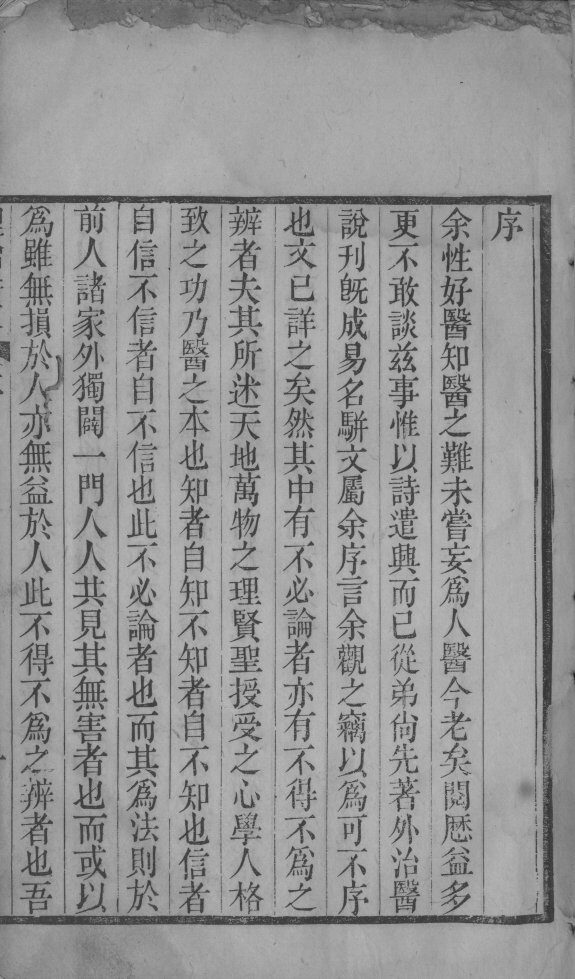 序
余性好醫知醫之難未嘗妄爲人醫今老矣閱歷益多
更不敢談茲事惟以詩遣興而已從弟尙先著外治醫
說刊旣成易名駢文屬余序言余觀之竊以爲可不序
也文已詳之矣然其中有不必論者亦有不得不爲之
辨者夫其所述天地萬物之理賢聖授受之心學人格
致之功乃醫之本也知者自知不知者自不知也信者
自信不信者自不信也此不必論者也而其爲法則於
前人諸家外獨闢一門人人共見其無害者也而或以
爲雖無損於人亦無益於人此不得不爲之辨者也吾